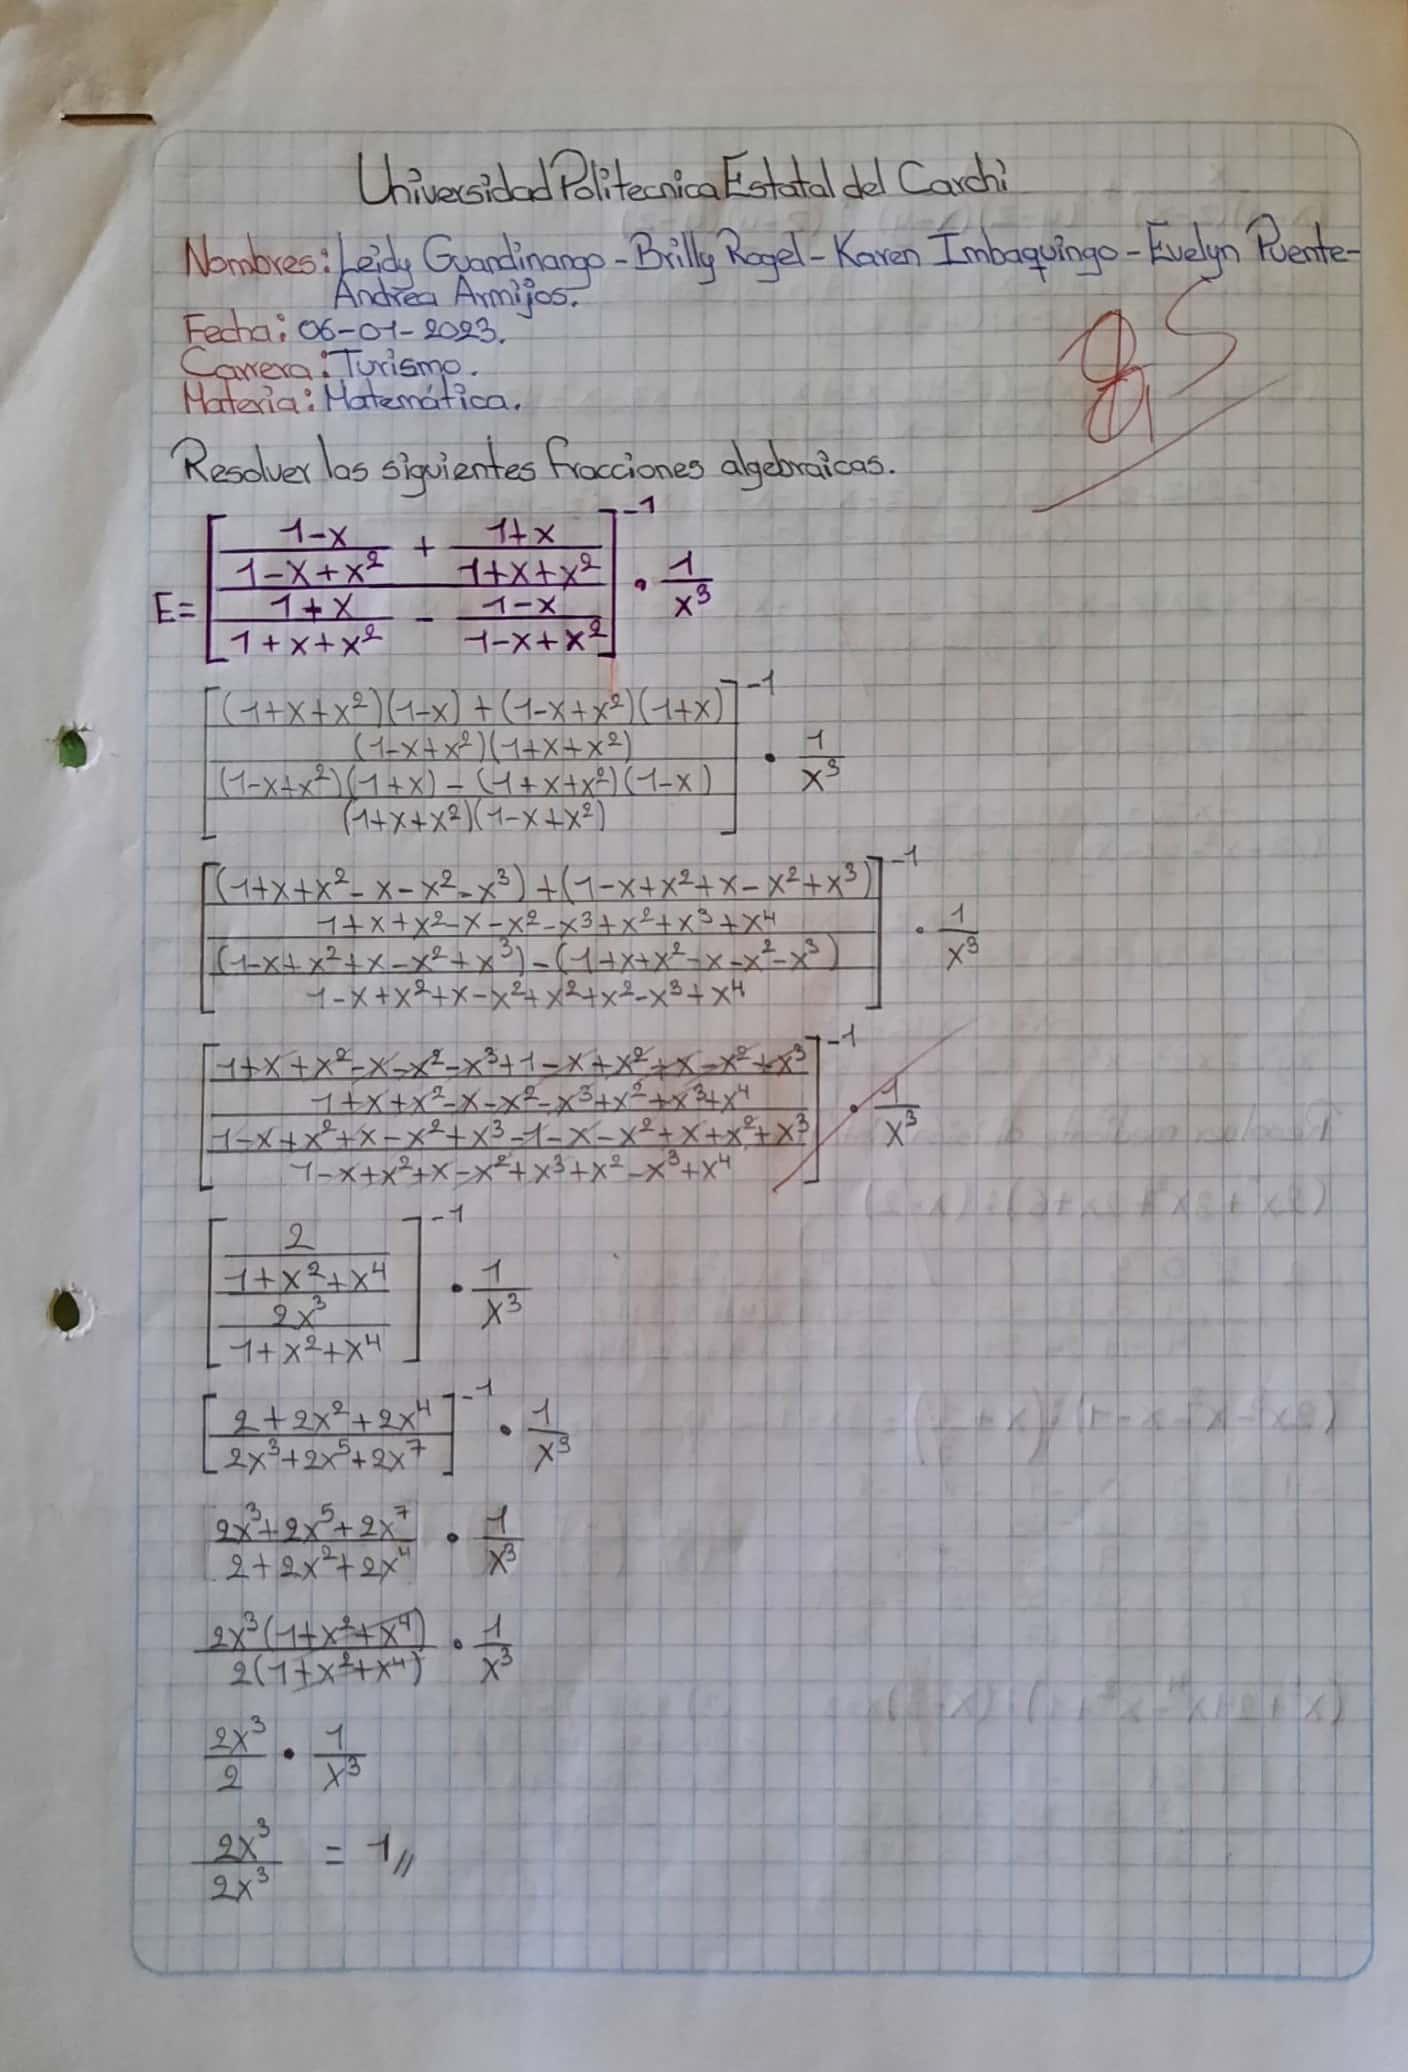 Universidad Politecnica Estatal del Carchi
Nombres: Leidy Guandinango - Brilly Rogel - Karen Imbaquingo - Evelyn Puente -
Andrea Armijos.
Fecha: 06-01-2023.
Carrera: Turismo.
Materia: Matemática.
Resolver las siguientes fracciones algebraicas.
E = [ (1-x)/(1-x+x²) + (1+x)/(1+x+x²)
(1+x)/(1+x+x²) - (1-x)/(1-x+x²) ]⁻¹ • 1/x³
[ (1+x+x²)(1-x) + (1-x+x²)(1+x)
(1-x+x²)(1+x+x²)
(1-x+x²)(1+x) - (1+x+x²)(1-x)
(1+x+x²)(1-x+x²) ]⁻¹ • 1/x³
[ (1+x+x²-x-x²-x³) + (1-x+x²+x-x²+x³)
1+x+x²-x-x²-x³+x²+x³+x⁴
(1-x+x²+x-x²+x³) - (1+x+x²-x-x²-x³)
1-x+x²+x-x²+x²+x²-x³+x⁴ ]⁻¹ • 1/x³
[ 1+x+x²-x-x²-x³+1-x+x²+x-x²+x³
1+x+x²-x-x²-x³+x²+x³+x⁴
1-x+x²+x-x²+x³-1-x-x²+x+x²+x³
1-x+x²+x-x²+x³+x²-x³+x⁴ ]⁻¹ • 1/x³
[ 2
1+x²+x⁴
2x³
1+x²+x⁴ ]⁻¹ • 1/x³
[ (2+2x²+2x⁴)/(2x³+2x⁵+2x⁷) ]⁻¹ • 1/x³
(2x³+2x⁵+2x⁷)/(2+2x²+2x⁴) • 1/x³
2x³(1+x²+x⁴)/2(1+x²+x⁴) • 1/x³
2x³/2 • 1/x³
2x³/2x³ = 1//